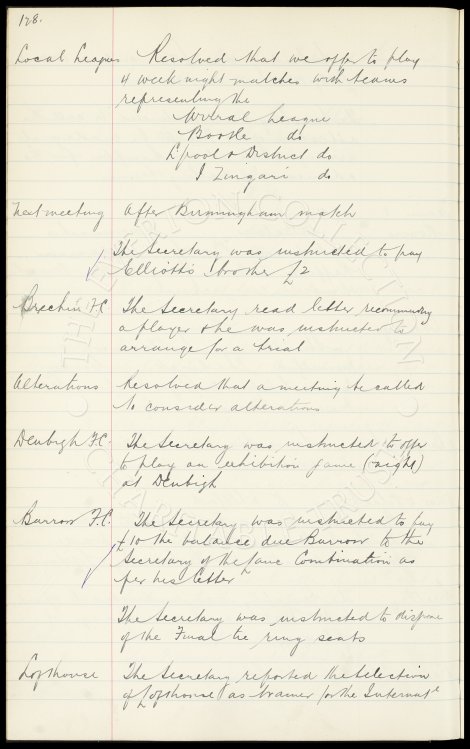 128.
Local Leagues Resolved that we offer to play
4 week night matches with teams
representing the
Wirral League
Bootle do
L'pool & District do
I Zingari do
Next meeting After Birmingham match
The Secretary was instructed to pay
Elliott's brother £2
Brechin F.C. The Secretary read letter recommending
a player & he was instructed to
arrange for a trial
Alterations Resolved that a meeting be called
to consider alterations
Denbigh F.C. The Secretary was instructed to offer
to play an exhibition game (night)
at Denbigh
Barrow F.C. The Secretary was instructed to pay
£10 the balance due Barrow to the
Secretary of the Lanc Combination as
per his letter
The Secretary was instructed to dispose
of the Final tie ring seats
Lofthouse The Secretary reported the selection
of Lofthouse as trainer for the Internatl
© THE EVERTON COLLECTION
CHARITABLE TRUST